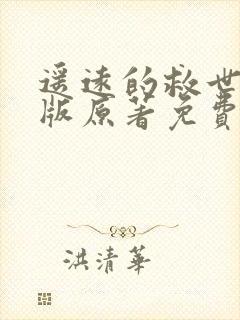 遥远的救世
版原著免費
洪清華